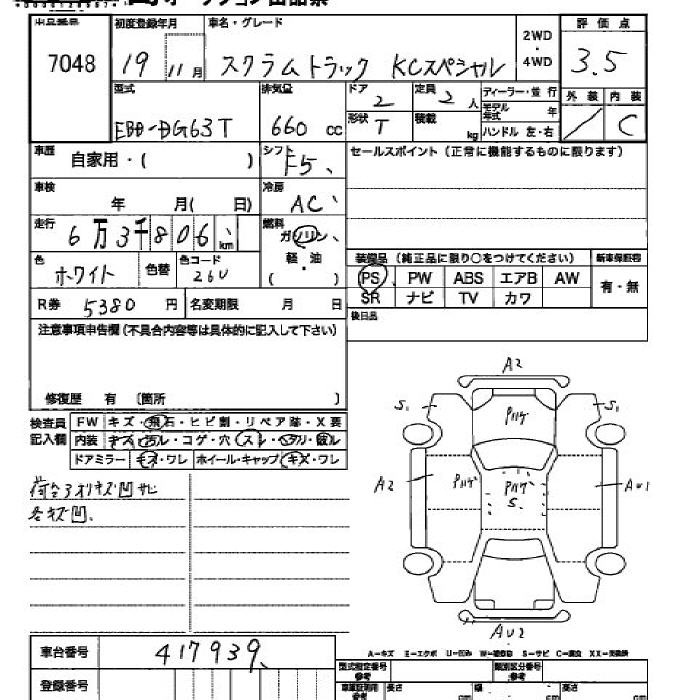 初度登録年月 車名・グレード 2WD ・ 4WD 評価点
7048 19 11月 スクラムトラック KCスペシャル 3.5
型式 排気量 ドア 2 定員 2人 ディーラー・並行 外装 内装
EBD-DG63T 660 cc 形状 T 積載 kg モデル年式 年 ハンドル 左・右 C
車歴 自家用・( ) シフト F5 セールスポイント(正常に機能するものに限ります)
車検 年 月( 日) 冷房 AC
走行 6万3千806 km 燃料 ガソリン
軽・油
( )
色 ホワイト 色替 色コード 26U
装備品 (純正品に限り○をつけてください) 新車保証書
PS PW ABS エアB AW 有・無
SR ナビ TV カワ
R券 5380 円 名変期限 月 日 後日品
注意事項申告欄(不具合内容等は具体的に記入して下さい)
修復歴 有 〔箇所 〕
検査員記入欄 FW キズ・飛石・ヒビ割・リペア跡・X要
内装 キズ・コゲ・穴
ドアミラー キズ・ワレ ホイール・キャップ キズ・ワレ
キズ凹 サビ
各キズ凹、
A2
S1 S1
Pハゲ
A2 Pハゲ Pハゲ S. AU1
AU2
A-キズ E-エクボ U-凹み S-サビ
車台番号 417939
登録番号
型式指定番号 参考 類別区分番号 参考
長さ cm 幅 cm 高さ cm